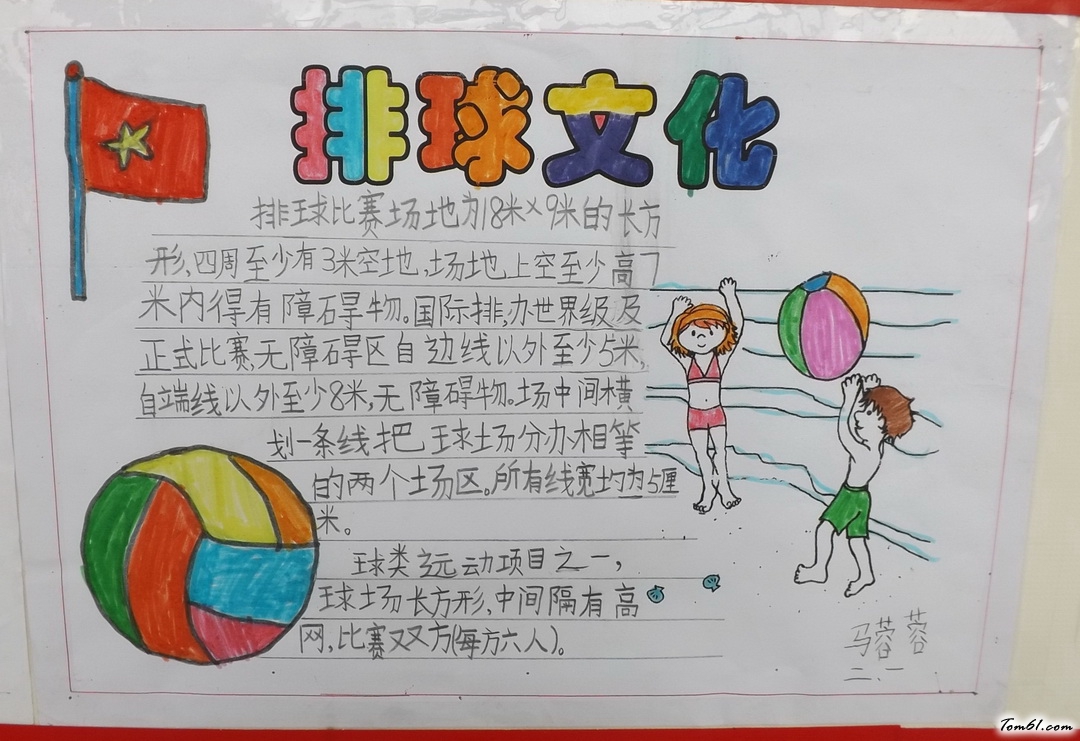 排球文化
排球比赛场地为18米×9米的长方
形,四周至少有3米空地,场地上空至少高7
米内得有障碍物。国际排,办世界级及
正式比赛,无障碍区自边线以外至少5米,
自端线以外至少8米,无障碍物。场中间横
划一条线把球场分办相等
的两个场区。所有线宽均为5厘
米。
球类运动项目之一,
球场长方形,中间隔有高
网,比赛双方(每方六人)。
马蓉蓉
二、一
Tom61.com